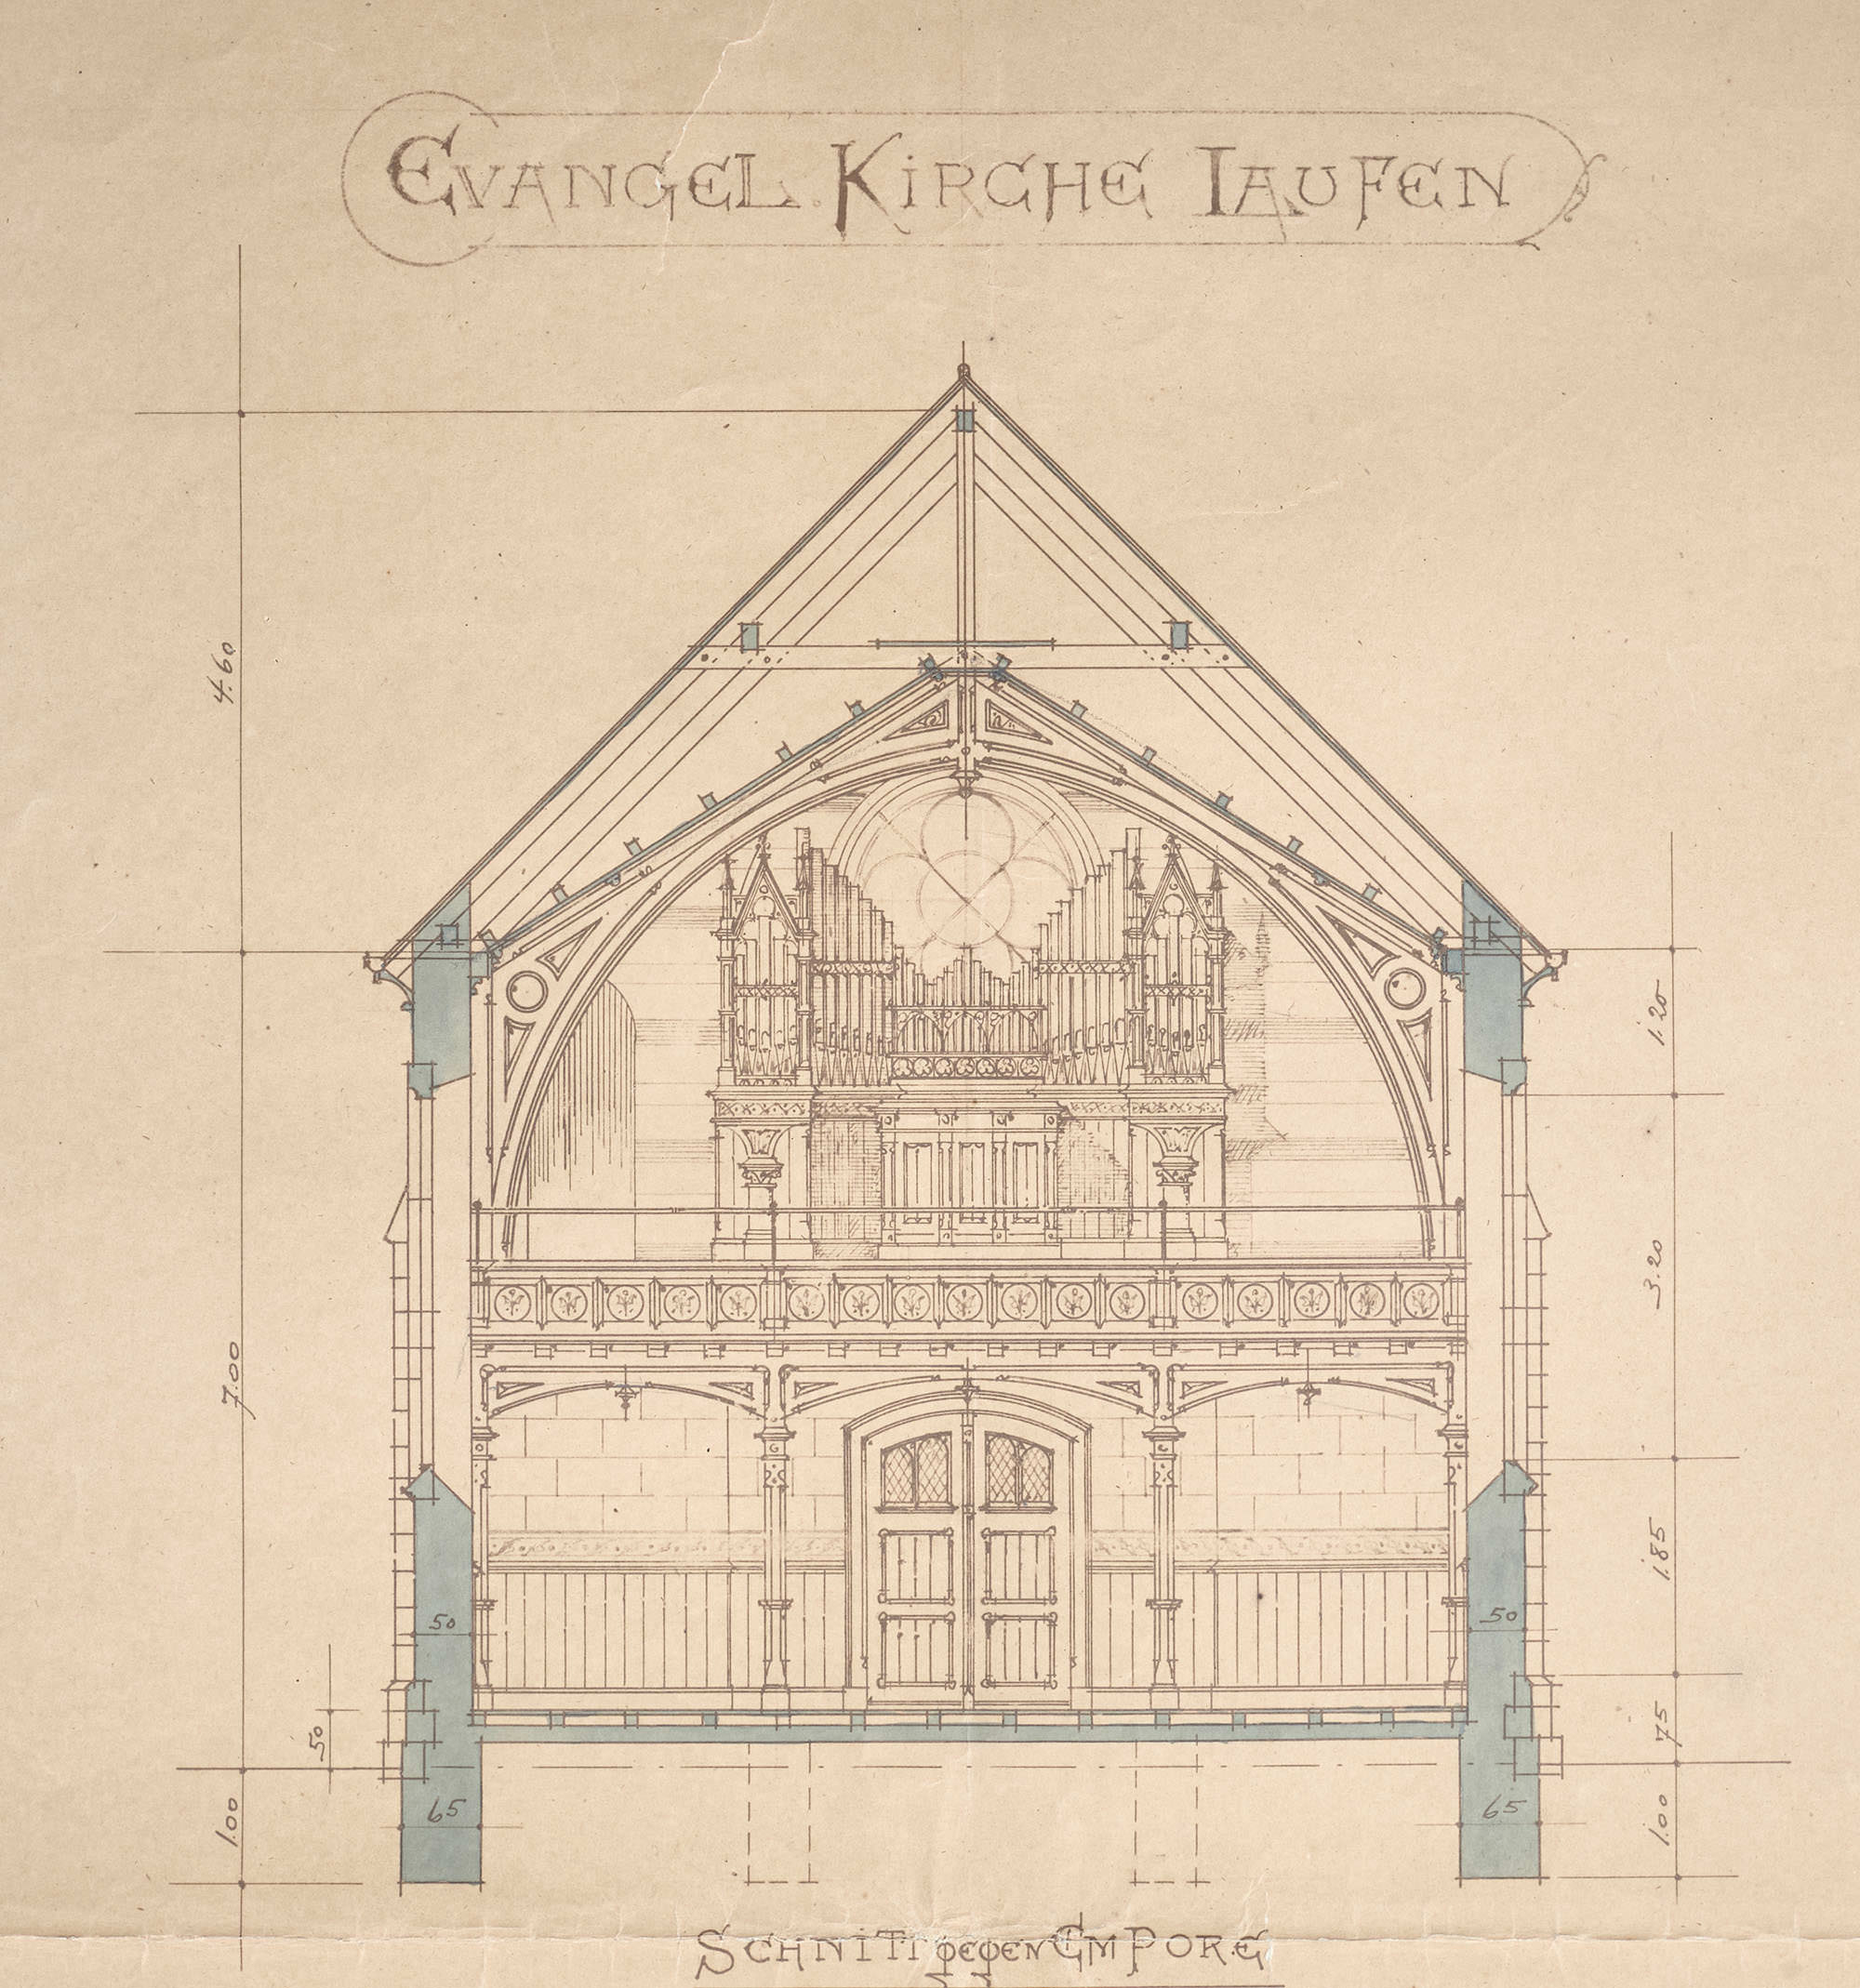 EVANGEL. KIRCHE LAUFEN
4.60
1.20
3.20
7.00
1.85
50 50
50 75
65 65
1.00 1.00
SCHNITT GEGEN EMPORE